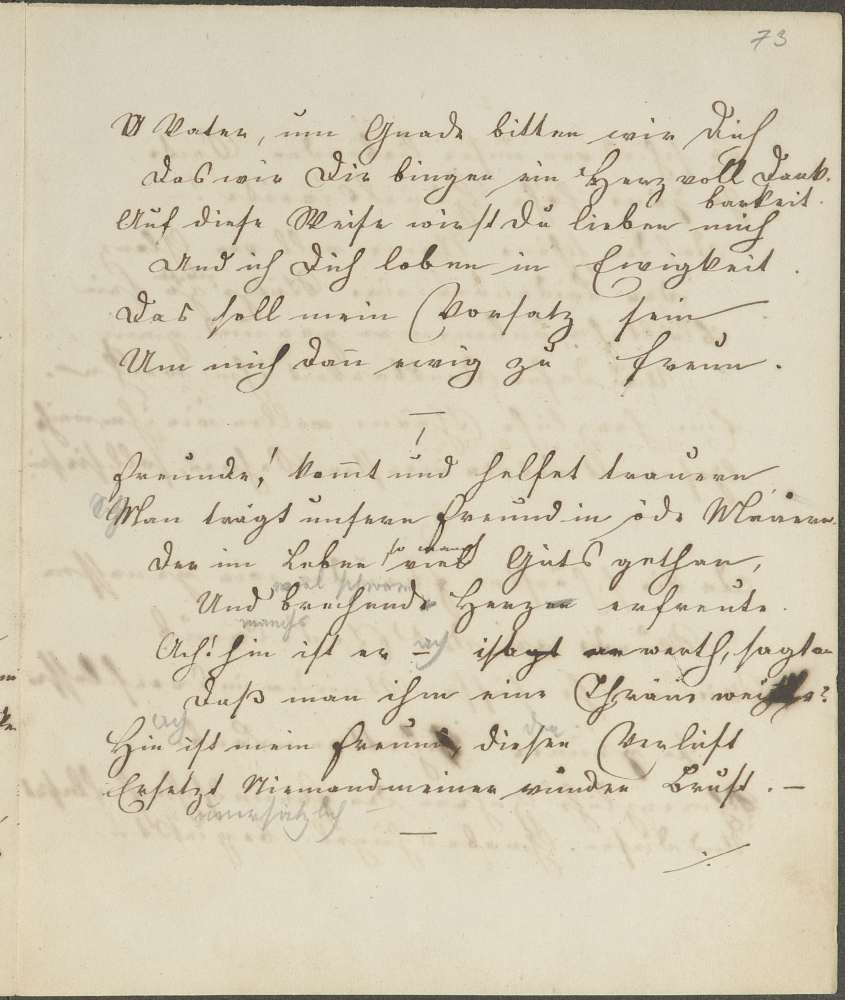 73
O Vater, um Gnade bitten wir Dich
Das wir Dir bingen ein Herz voll Dank-
barkeit.
Auf diese Weise wirst Du lieben mich
Und ich Dich loben in Ewigkeit.
Das soll mein Vorsatz sein
Um mich dann ewig zu freun.
Freunde! kommt und helfet trauern
Man trägt unsern Freund in öde Mauern.
so manch
Der im Leben viel Guts gethan,
viel
Und brechende Herzen erfreute.
manchs
Ach! hin ist er – ach werth, sagt
Daß man ihm eine Thräne
ach
Hin ist mein Freund, diesen Verlust
Ersetzt Niemand meiner wunden Brust. –
unersätzlich